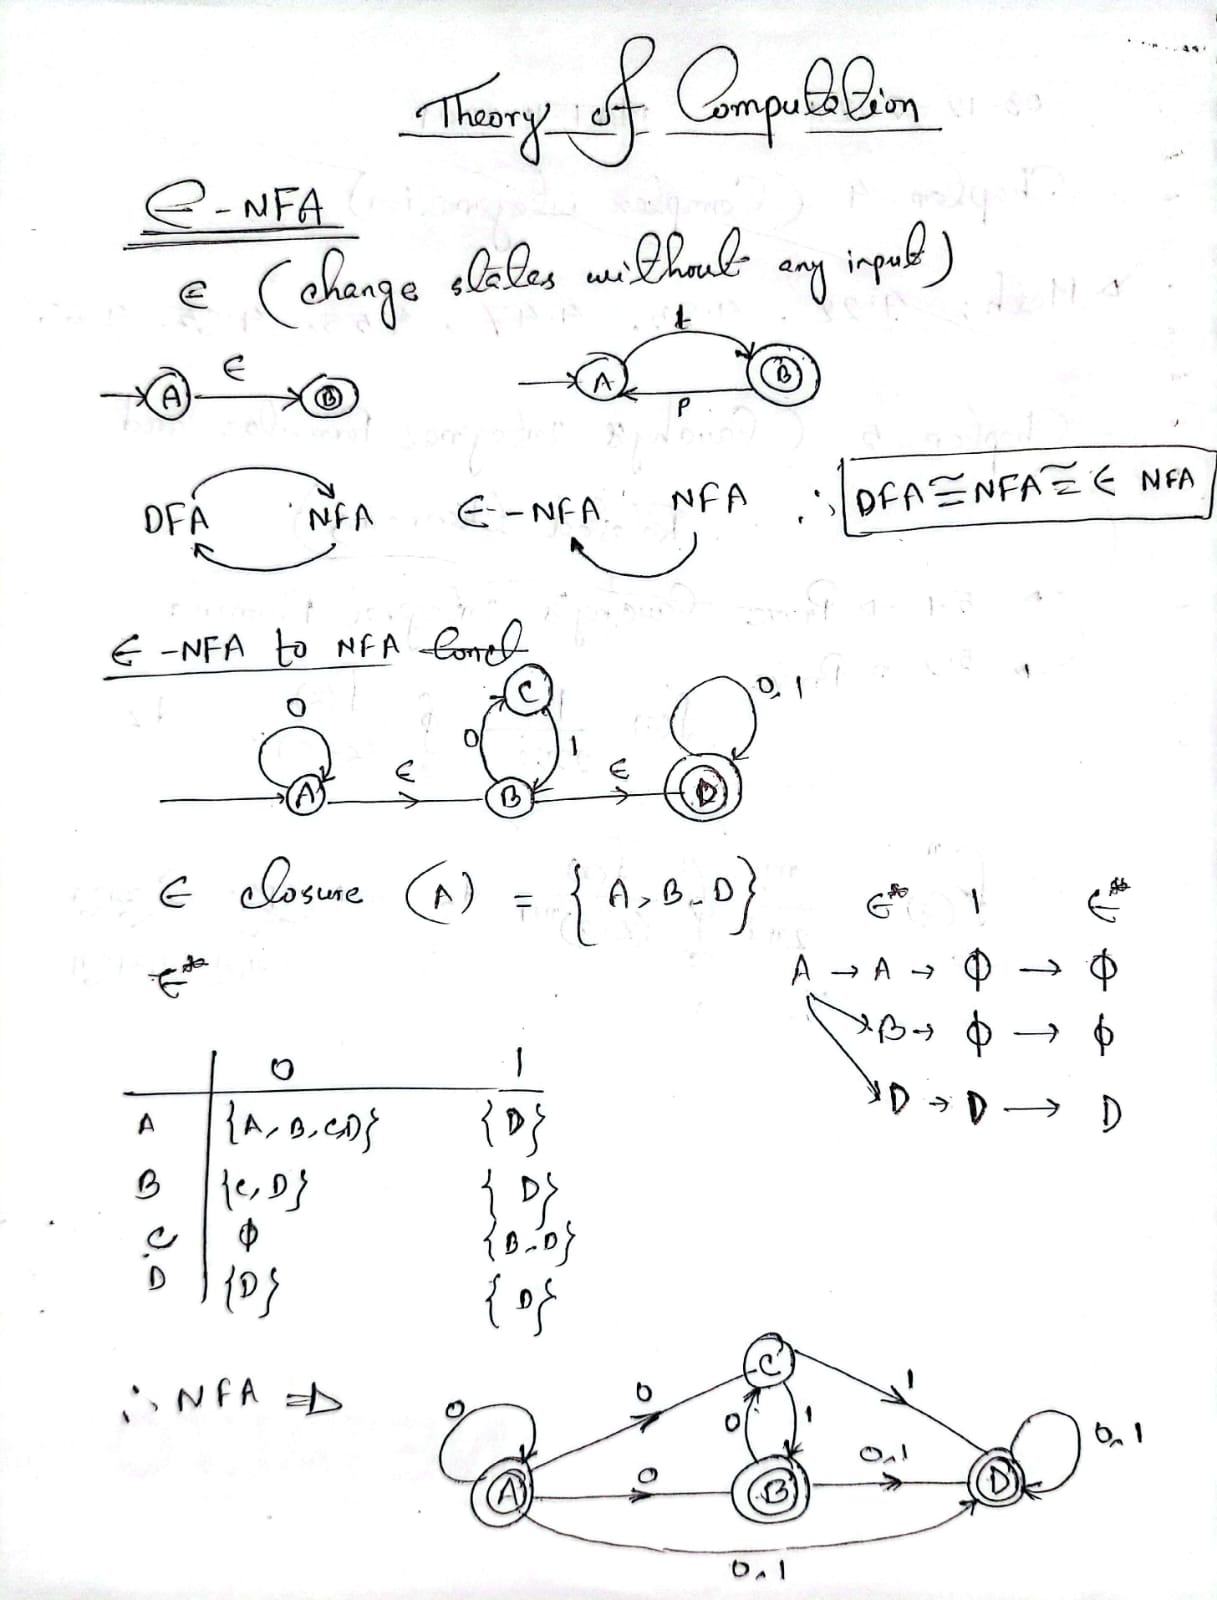 Theory of Computation
ϵ-NFA
ϵ (change states without any input)
A ϵ B
t
A B
P
DFA NFA ϵ-NFA NFA ∴ DFA ≅ NFA ≅ ϵ NFA
ϵ-NFA to NFA
C
0 0 1 0,1
A ϵ B ϵ D
ϵ closure (A) = {A, B, D}
ϵ*
ϵ* 1 ϵ*
A → A → ϕ → ϕ
B → ϕ → ϕ
D → D → D
0 1
A {A, B, C, D} {D}
B {C, D} {D}
C ϕ {B, D}
D {D} {D}
∴ NFA ⇒
C
0 0 0 1 1
A 0 B 0,1 D 0,1
0,1